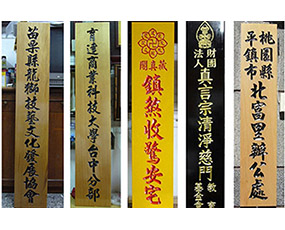 苗栗縣龍獅技藝文化發展協會
育達商業科技大學台中分部
藏真閣
鎮煞收驚安宅
財團法人
真言宗清淨慈門
教室
基金會
桃園縣
平鎮市
北富里辦公處